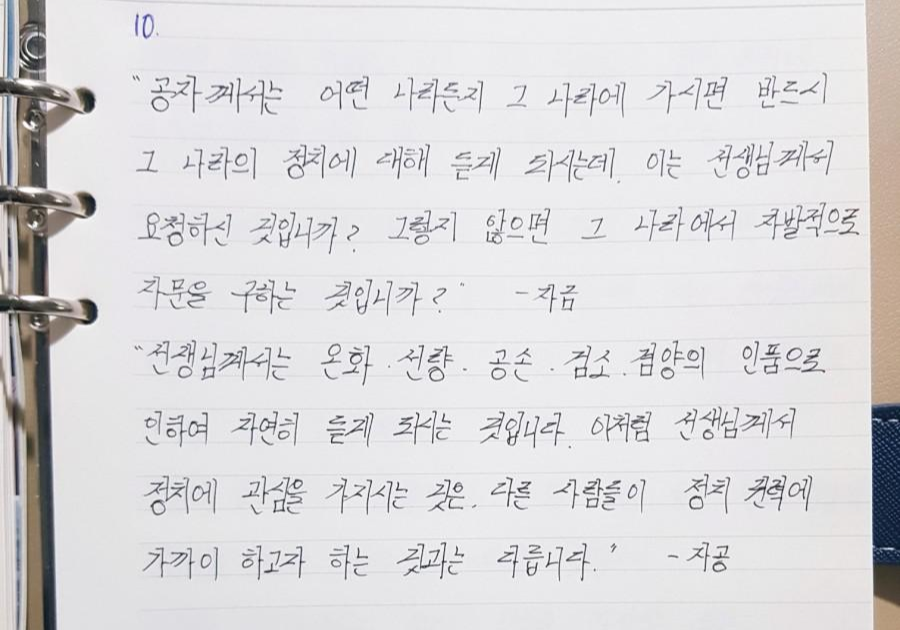 10.
“공자께서는 어떤 나라든지 그 나라에 가시면 반드시
그 나라의 정치에 대해 듣게 되시는데, 이는 선생님께서
요청하신 것입니까? 그렇지 않으면 그 나라에서 자발적으로
자문을 구하는 것입니까?” -자금
“선생님께서는 온화·선량·공손·검소·겸양의 인품으로
인하여 자연히 듣게 되시는 것입니다. 이처럼 선생님께서
정치에 관심을 가지시는 것은, 다른 사람들이 정치 권력에
가까이 하고자 하는 것과는 다릅니다.” -자공